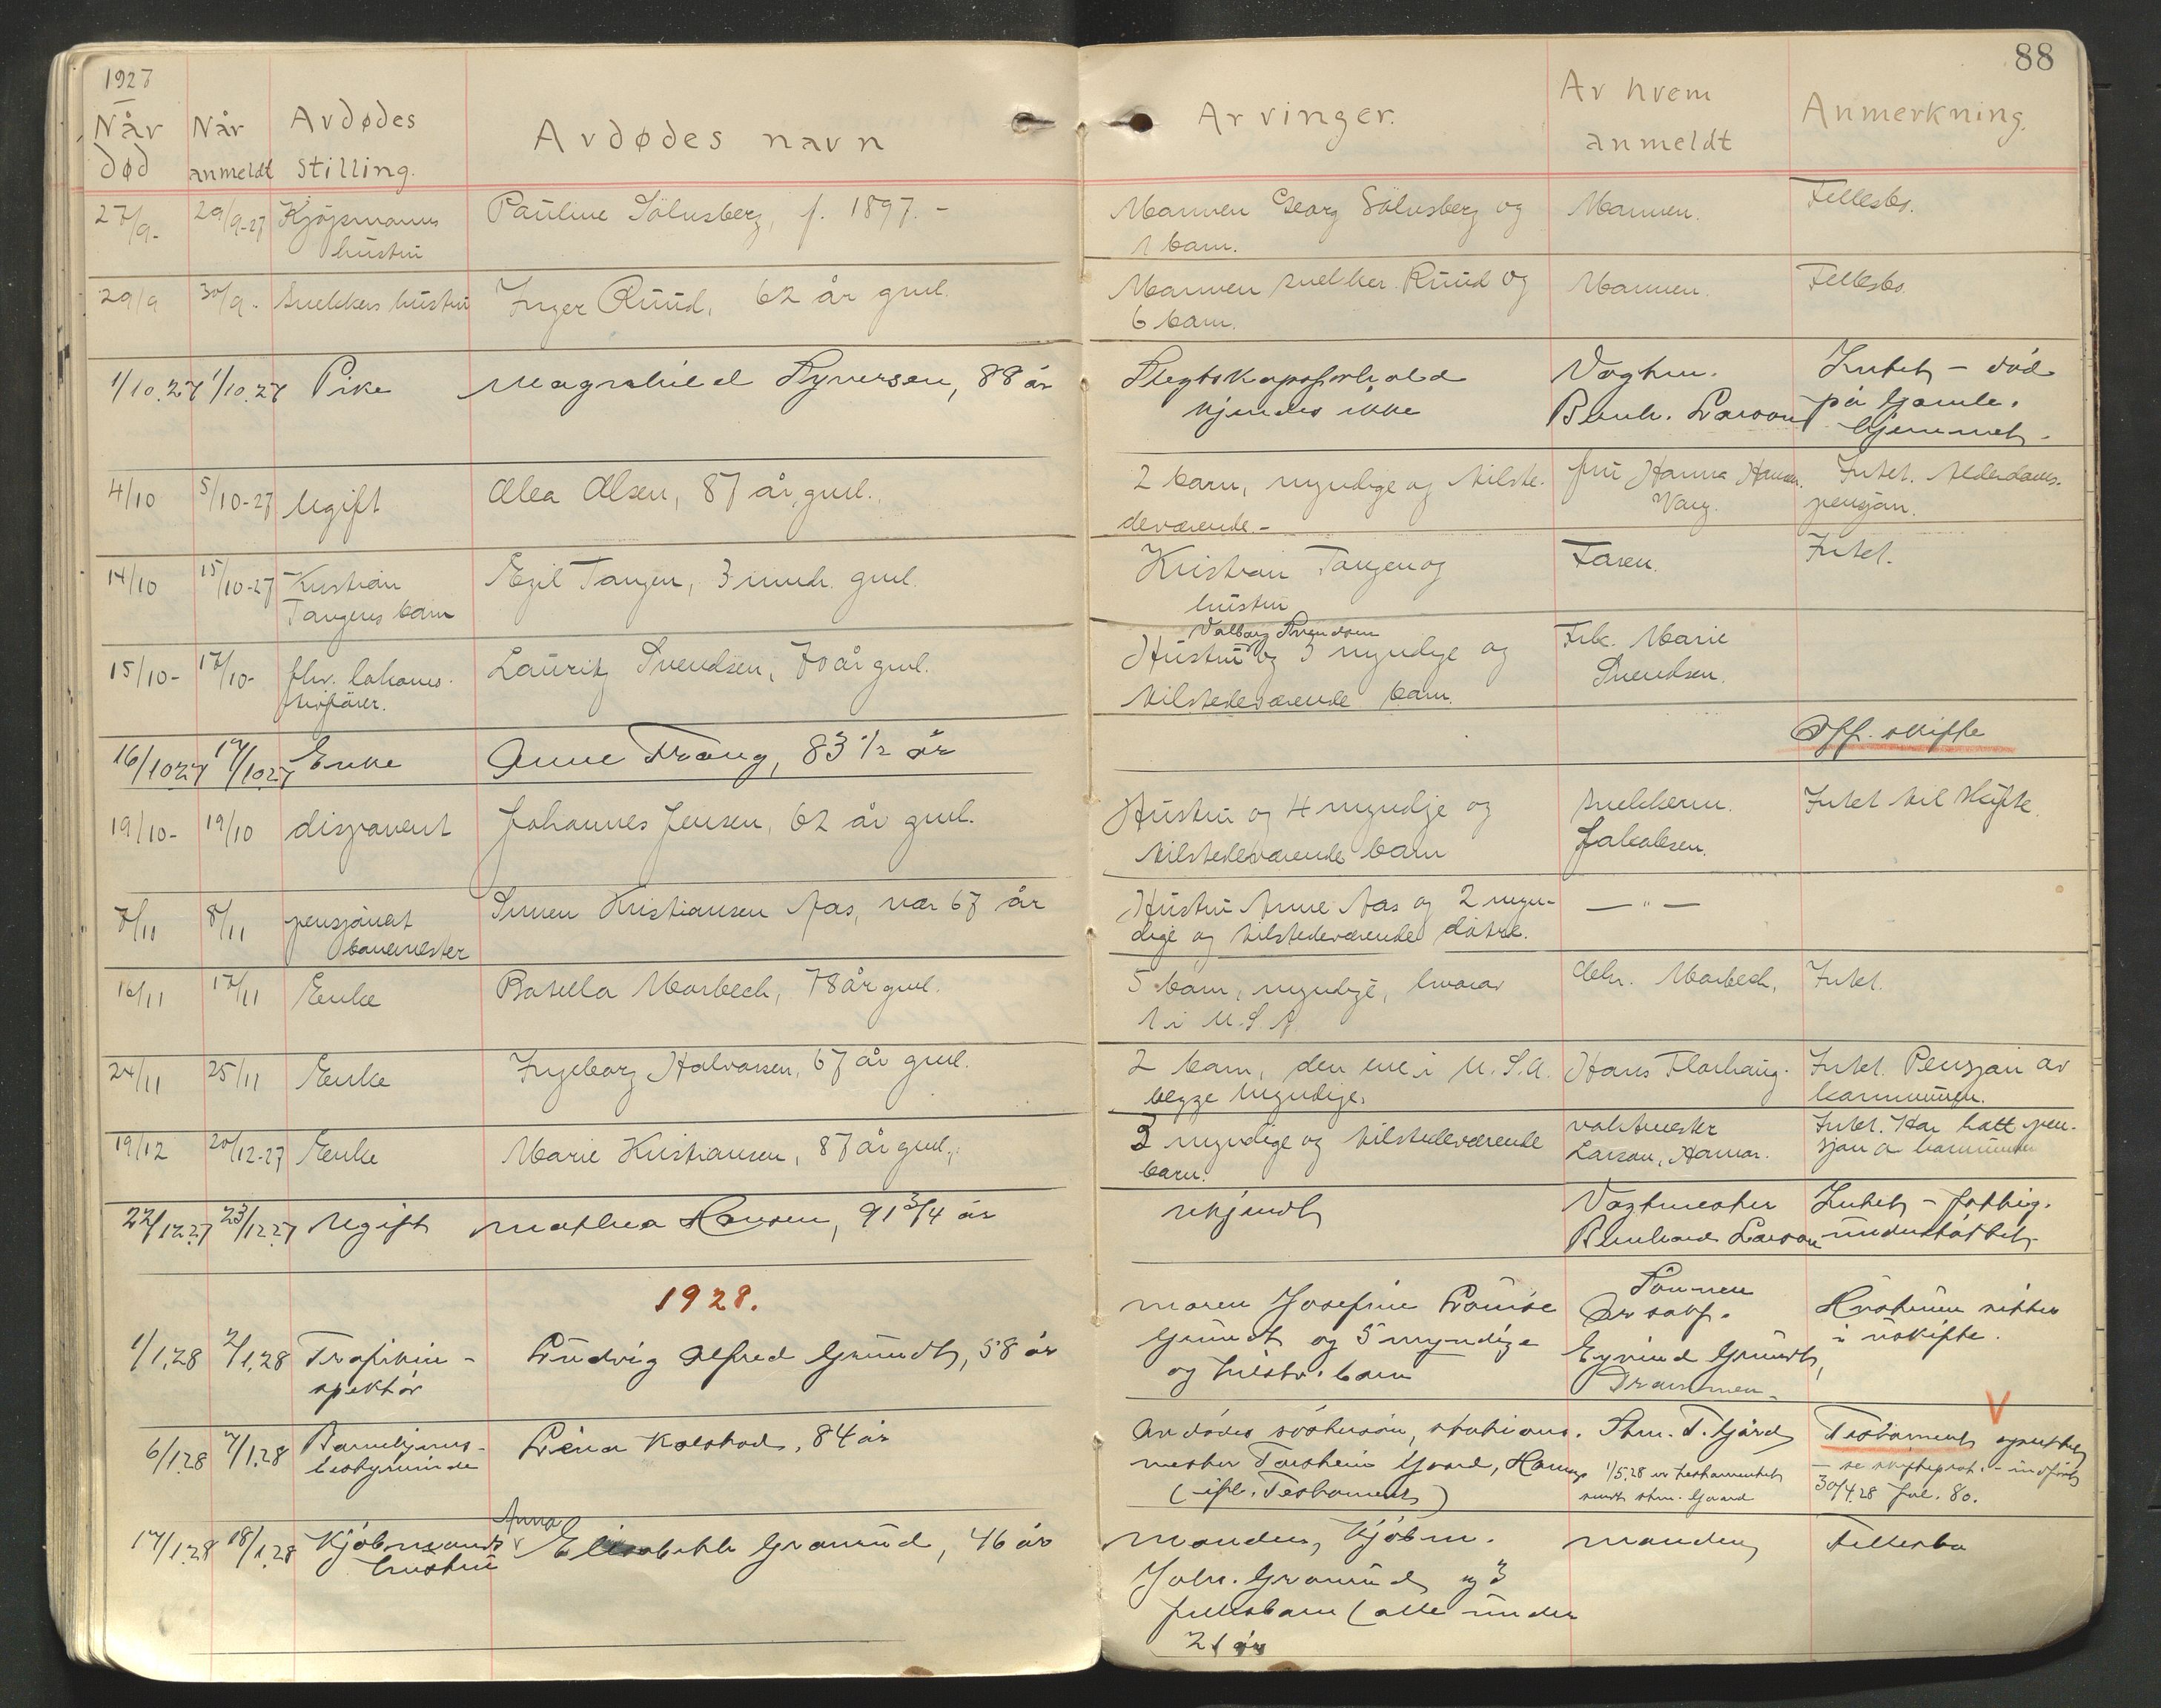 88
1927
Når død
Når anmeldt
Avdødes stilling.
Avdødes navn
Arvinger.
Av hvem anmeldt
Anmerkning.
27/9- 29/9-27 Kjøpmanns Pauline Sölvsberg, f. 1897. - Mannen Georg Sölvsberg og Mannen. Fellesbo.
hustru 1 barn.
29/9 30/9- Snekkers hustru Inger Ruud, 62 år gml. Mannen snekker Ruud og Mannen. Fellesbo.
6 barn.
1/10.27 1/10.27 Pike Magnhild Syversen, 88 år Slegtskapsforhold Vagtm. Intet - död
kjendes ikke Bernh. Larson på Gamle-
hjemmet.
4/10 5/10-27 Ugift Olea Olsen, 87 år gml. 2 barn, myndige og tilste- fru Hanna Hansen. Intet. Alderdoms-
deværende.- Vang. pensjon.
14/10 15/10-27 Kristian Egil Tangen, 3 mndr. gml. Kristian Tangen og Faren. Intet.
Tangens barn hustru
Valborg Svendsen
15/10- 17/10- fhv. lokomo- Lauritz Svendsen, 70 år gml. Hustru og 3 myndige og Frk. Marie
tivförer. tilstedeværende barn. Svendsen.
16/10 27 17/10 27 Enke Anne Frang, 83 1/2 år Off. skifte
19/10- 19/10 disponent Johannes Jensen, 62 år gml. Hustru og 4 myndige og snekkerm. Intet til skifte.
tilstedeværende barn Jakobsen.
7/11 8/11 pensjonert Simen Kristiansen Aas, nær 67 år Hustru Anne Aas og 2 myn- — " —
banemester dige og tilstedeværende døtre.
16/11 17/11 Enke Morbech, 78 år gml. 5 barn, myndige, hvorav Morbech, Intet.
1 i U.S.A.
24/11 25/11 Enke Ingeborg Halvorsen, 67 år gml. 2 barn, den ene i U.S.A. Hans Florhaug. Intet. Pensjon av
begge myndige. kommunen.
19/12 20/12-27 Enke Marie Kristiansen, 87 år gml. 3 myndige og tilstedeværende vaktmester Intet. Har hatt pen-
barn. Larson, Hamar. sjon av kommunen
22/12 27 23/12 27 Ugift Mathea Hansen, 91 3/4 år ukjendt Vagtmester Intet - fattig-
Bernhard Larson understöttet.
1928.
1/1.28 2/1.28 Trafikin- Ludvig Alfred Grundt, 58 år Maren Josefine Louise Sönnen Hustruen sitter
spektör Grundt og 5 myndige Or.sakf. i uskifte.
og tilstv. barn Eyvind Grundt,
Drammen.
6/1.28 7/1.28 Barnehjems- Lina Kolstad, 84 år Avdödes söstersön, stations- Stm. T. Gård Testament oprettet
bestyrerinde mester Torstein Gaard, Hamar 1/5.28 er testamentet - se skifteprot. - indfört
(ifl. Testament) sendt stm. Gaard 30/4.28 fol. 80.
17/1.28 18/1.28 Kjöbmands Anna Elisabeth Granrud, 46 år Manden, Kjöbm. Manden Fellesbo
hustru Johs. Granrud og 3
fellesbarn (alle under
21 år